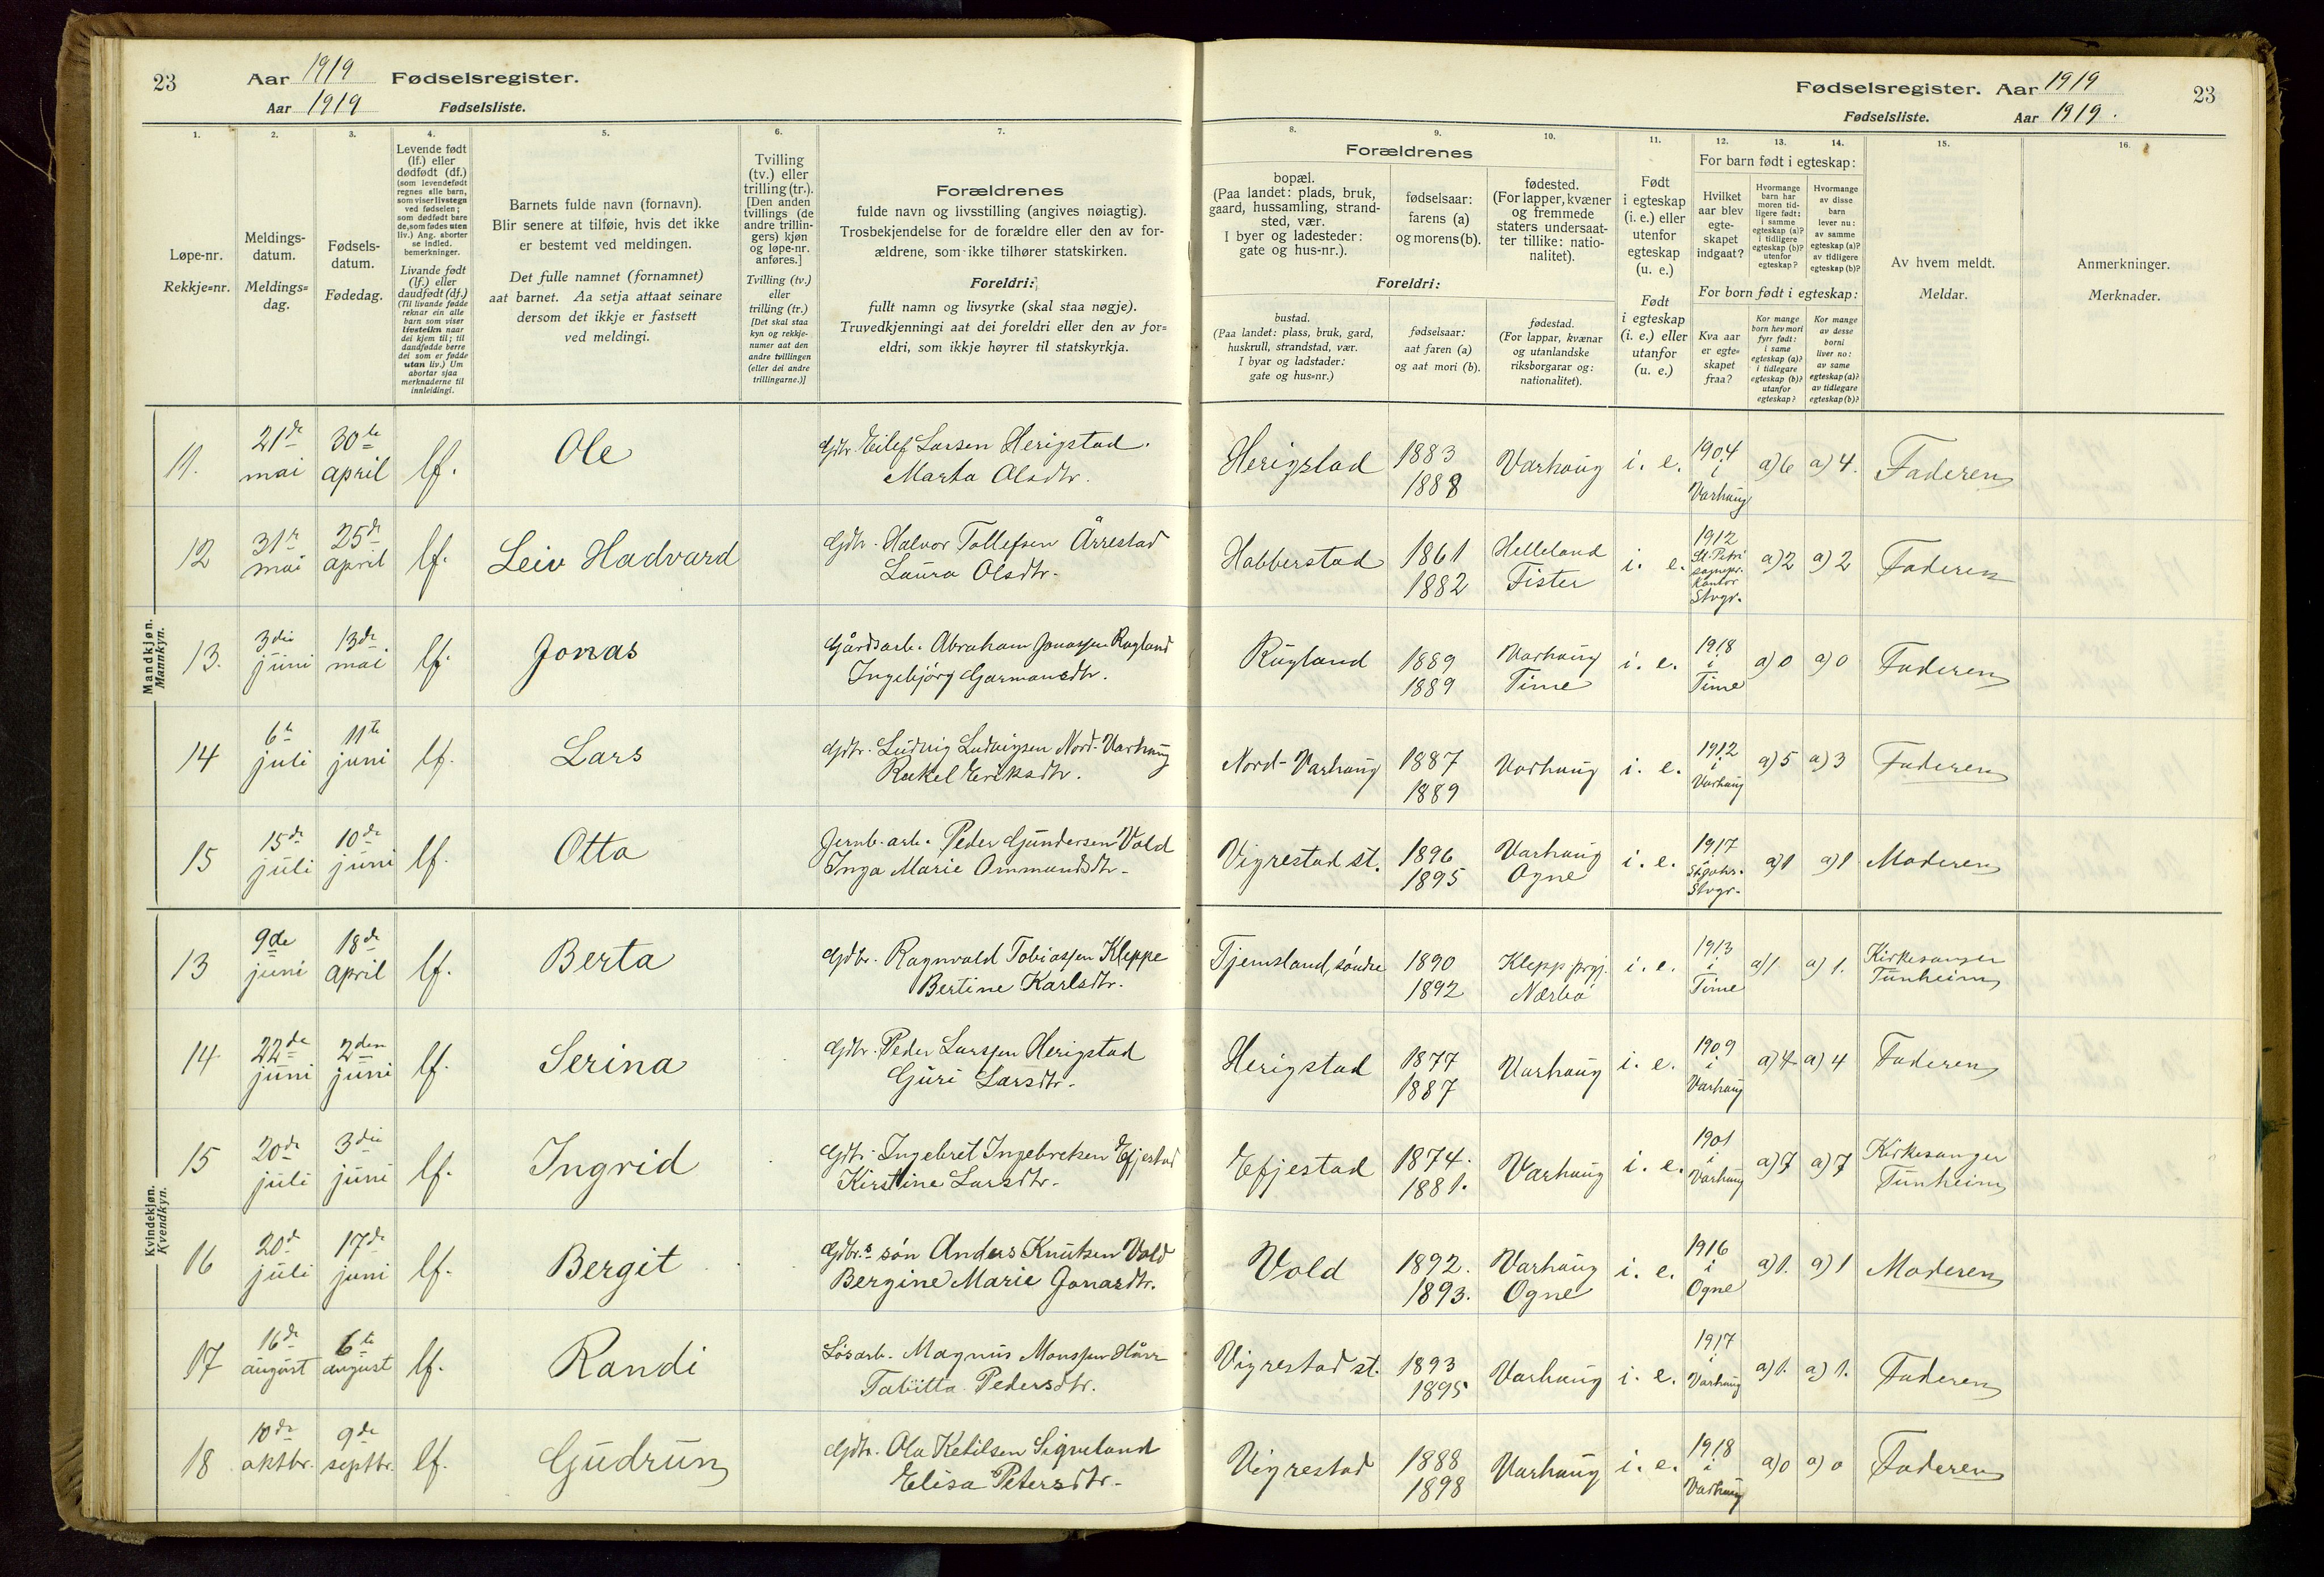 23 Aar 1919 Fødselsregister.
Aar 1919 Fødselsliste.
1. 2. 3. 4. 5. 6. 7.
Løpe-nr.
Rekkje=nr.
Meldings-
datum.
Meldings=
dag.
Fødsels-
datum.
Fødedag.
Levende født
(lf.) eller
dødfødt (df.)
(som levendefødt
regnes alle barn,
som viser livstegn
ved fødselen;
som dødfødt bare
de, som fødes uten
liv.) Ang. aborter
se indled.
bemerkninger.
Livande født
(lf.) eller
daudfødt (df.)
(Til livande fødde
reknar ein alle
barn som viser
livsteikn naar
dei kjem til; til
daudfødde berre
dei som er fødde
utan liv.) Um
abortar sjaa
merknaderne til
innleidingi.
Barnets fulde navn (fornavn).
Blir senere at tilføie, hvis det ikke
er bestemt ved meldingen.
Det fulle namnet (fornamnet)
aat barnet. Aa setja attaat seinare
dersom det ikkje er fastsett
ved meldingi.
Tvilling
(tv.) eller
trilling (tr.).
[Den anden
tvillings (de
andre trillin-
gers) kjøn
og løpe-nr.
anføres.]
Tvilling (tv.)
eller
trilling (tr.)
[Det skal staa
kyn og rekkje-
numer aat den
andre tvillingen
(eller dei andre
trillingarne.)]
Forældrenes
fulde navn og livsstilling (angives nøiagtig).
Trosbekjendelse for de forældre eller den av for-
ældrene, som ikke tilhører statskirken.
Foreldri:
fullt namn og livsyrke (skal staa nøgje).
Truvedkjenningi aat dei foreldri eller den av for=
eldri, som ikkje høyrer til statskyrkja.
Mandkjøn.
Mannkyn.
11. 21de mai 30te april lf. Ole Gdbr. Eilef Larsen Herigstad.
Marta Olsdtr.
12 31te mai 25de april lf. Leiv Hadvard Gdbr. Halvor Tollefsen Årrestad
Laura Olsdtr.
13. 3die juni 13de mai lf. Jonas Gårdsarb. Abraham Jonassen Rugland
Ingebjörg Garmansdtr.
14 6te juli 11te juni lf. Lars Gdbr. Ludvig Ludvigsen Nord-Varhaug
Rakel Eriksdtr.
15 15de juli 10de juni lf. Otto Jernb. arb. Peder Gundersen Vold
Inga Marie Ommundsdtr.
Kvindekjøn.
Kvendkyn.
13 9de juni 18de april lf. Berta Gdbr. Ragnvald Tobiassen Kleppe
Bertine Karlsdtr.
14 22de juni 2den juni lf. Serina Gdbr. Peder Larssen Herigstad
Guri Larsdtr.
15 20de juli 3die juni lf. Ingrid Gdbr. Ingebret Ingebretsen Efjestad
Kirstine Larsdtr.
16 20de juli 17de juni lf. Bergit Gdbr.s sön Anders Knutsen Vold
Bergine Marie Jonasdtr.
17 16de august 6te august lf. Randi Lösarb. Magnus Monssen Hårr
Tabitta Pedersdtr.
18 10de oktbr. 9de septbr. lf. Gudrun Gdbr. Ola Ketilsen Sigveland
Elisa Petersdtr.
Fødselsregister. Aar 1919 23
Fødselsliste. Aar 1919.
8. 9. 10. 11. 12. 13. 14. 15. 16.
Forældrenes
bopæl.
(Paa landet: plads, bruk,
gaard, hussamling, strand-
sted, vær.
I byer og ladesteder:
gate og hus-nr.).
fødselsaar:
farens (a)
og morens (b).
fødested.
(For lapper, kvæner
og fremmede
staters undersaat-
ter tillike: natio-
nalitet).
Foreldri:
bustad.
(Paa landet: plass, bruk, gard,
huskrull, strandstad, vær.
I byar og ladstader:
gate og hus=nr.)
fødselsaar:
aat faren (a)
og aat mori (b).
fødestad.
(For lappar, kvænar
og utanlandske
riksborgarar og:
nationalitet).
Født
i egteskap
(i. e.) eller
utenfor
egteskap
(u. e.)
Født
i egteskap
(i. e.) eller
utanfor
(u. e.)
For barn født i egteskap:
Hvilket
aar blev
egte-
skapet
indgaat?
Hvormange
barn har
moren tid-
ligere født:
i samme
egteskap (a)?
i tidligere
egteskap (b)?
utenfor
egteskap?
Hvormange
av disse
barn
lever nu:
av samme
egteskap (a)?
av tidligere
egteskap (b)?
For born født i egteskap:
Kva aar
er egte=
skapet
fraa?
Kor mange
born hev mori
fyrr født:
i same
egteskap (a)?
i tidlegare
egteskap (b)?
utanfor
egteskap?
Kor mange
av desse
borni
liver no:
av same
egteskap (a)?
av tidlegare
egteskap (b)?
Av hvem meldt.
Meldar.
Anmerkninger.
Merknader.
Herigstad 1883 1888 Varhaug i. e. 1904 i Varhaug a) 6 a) 4. Faderen
Habberstad 1861 1882 Helleland Fister i. e. 1912 St. Petri sognepr. kontor Stvgr. a) 2 a) 2 Faderen
Rugland 1889 1889 Varhaug Time i. e. 1918 i Time a) 0 a) 0 Faderen
Nord-Varhaug 1887 1889 Varhaug i. e. 1912 i Varhaug a) 5 a) 3 Faderen
Vigrestad st. 1896 1895 Varhaug Ogne i. e. 1917 St. Johs. Stvgr. a) 1 a) 1 Moderen
Tjemsland, söndre 1890 1892 Klepp prgj. Nærbö i. e. 1913 i Time a) 1. a) 1. Kirkesanger Tunheim
Herigstad 1877 1887 Varhaug i. e. 1909 i Varhaug a) 4 a) 4 Faderen
Efjestad 1874. 1881. Varhaug i. e. 1901 i Varhaug a) 7 a) 7 Kirkesanger Tunheim
Vold 1892. 1893. Varhaug Ogne i. e. 1916 i Ogne a) 1. a) 1 Moderen
Vigrestad st. 1893 1895 Varhaug i. e. 1917 i Varhaug a) 1. a) 1. Faderen
Vigrestad 1888 1898 Varhaug i. e. 1918 i Varhaug a) 0 a) 0 Faderen